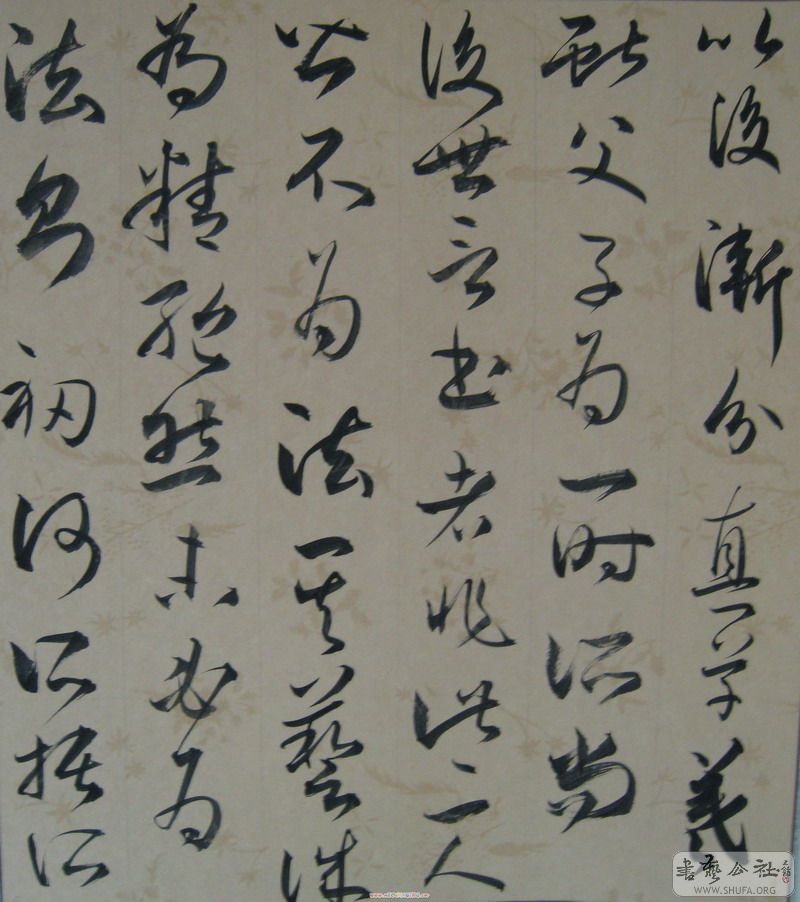 以後漸分真草羲
獻父子為一時所尚
後世言書者非此二人
皆不為法其藝誠
為精絕然未必為
法則初何所據所
書藝公社
WWW.SHUFA.ORG